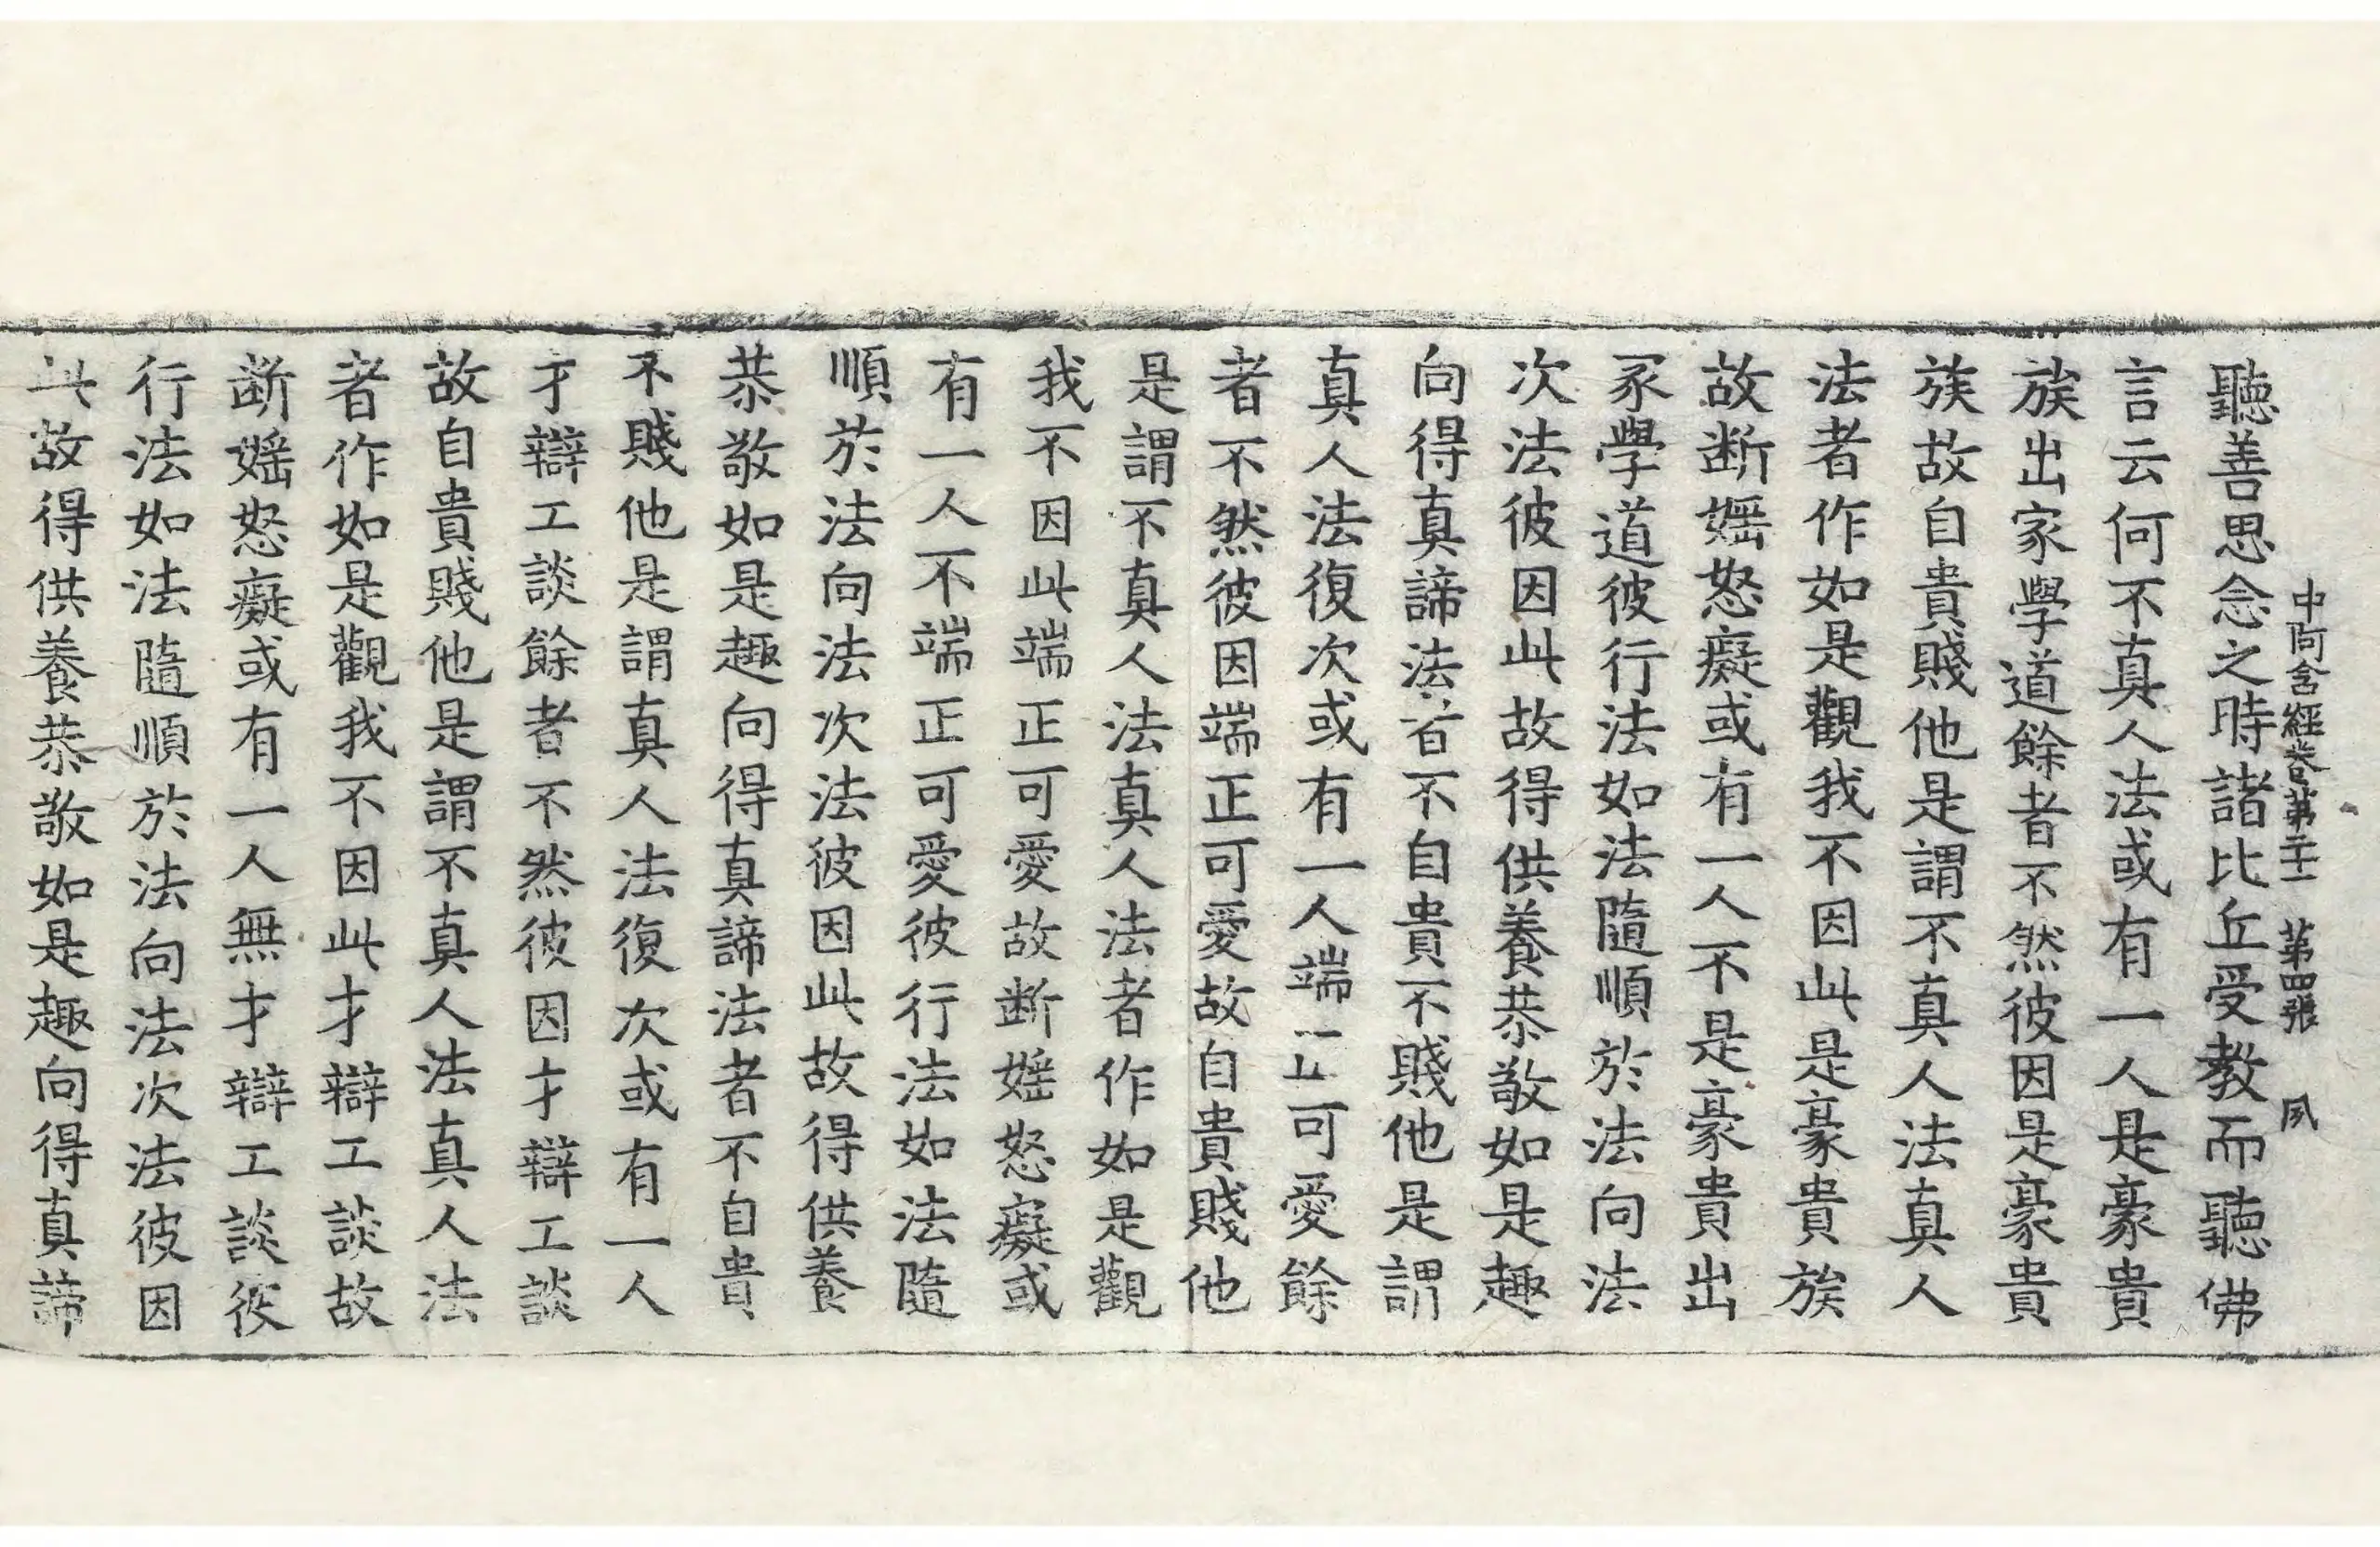 中阿含經卷第二十一　第四張　夙
聽善思念之時諸比丘受教而聽佛
言云何不真人法或有一人是豪貴
族出家學道餘者不然彼因是豪貴
族故自貴賤他是謂不真人法真人
法者作如是觀我不因此是豪貴族
故断婬怒癡或有一人不是豪貴出
家學道彼行法如法隨順於法向法
次法彼因此故得供養恭敬如是趣
向得真諦法者不自貴不賤他是謂
真人法復次或有一人端正可愛餘
者不然彼因端正可愛故自貴賤他
是謂不真人法真人法者作如是觀
我不因此端正可愛故断婬怒癡或
有一人不端正可愛彼行法如法隨
順於法向法次法彼因此故得供養
恭敬如是趣向得真諦法者不自貴
不賤他是謂真人法復次或有一人
才辯工談餘者不然彼因才辯工談
故自貴賤他是謂不真人法真人法
者作如是觀我不因此才辯工談故
断婬怒癡或有一人無才辯工談彼
行法如法隨順於法向法次法彼因
此故得供養恭敬如是趣向得真諦